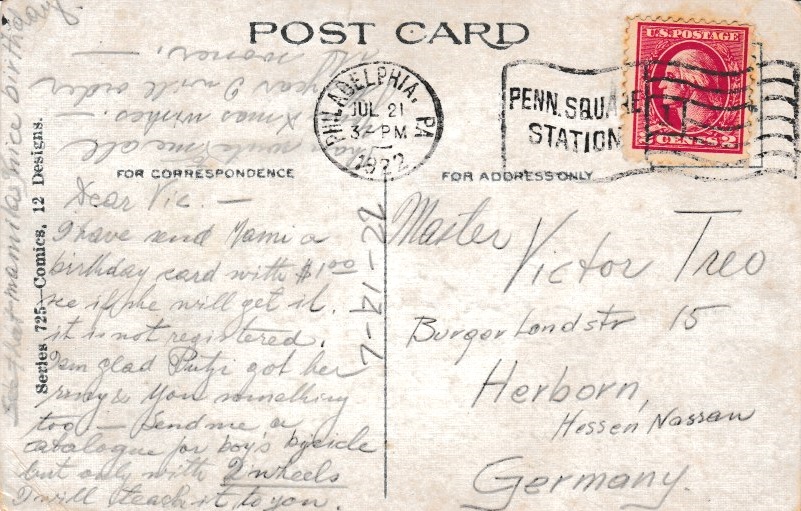 POST CARD
U.S. POSTAGE
2 CENTS 2
PHILADELPHIA, PA
JUL 21
3 - PM
1922
PENN. SQUARE
STATION
FOR CORRESPONDENCE
FOR ADDRESS ONLY
Series 725—Comics, 12 Designs.
Dear Vic. —
I have send Mami a
birthday card with $1.00
see if she will get it.
it is not registered.
I am glad Putzi got her
ring & You something
too — Send me a
catalogue for boy's bycicle
but only with 2 wheels
I will teach it to you.
write me all
Xmas wishes. -
year I will order
sooner. -
See that mami has nice birthday
7-17-22
Master
Victor Treo
Burger Landstr 15
Herborn,
Hessen Nassau
Germany.